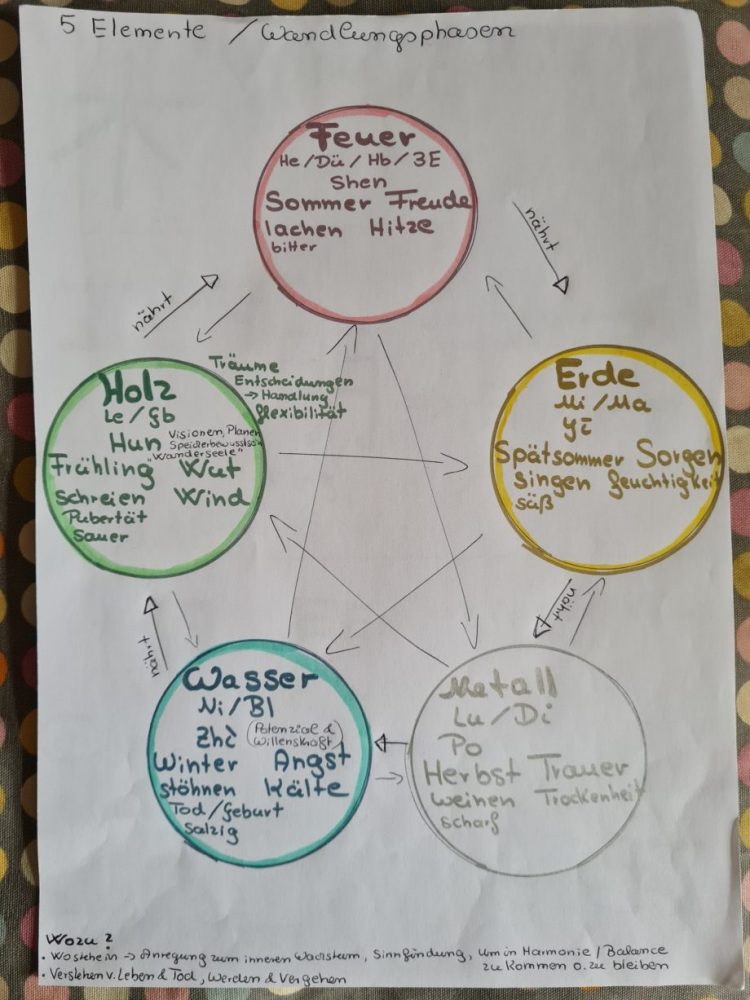 5 Elemente / Wandlungsphasen
Feuer
He/Dü/Hb/3E
Shen
Sommer Freude
lachen Hitze
bitter
nährt
nährt
Träume
Entscheidungen
→ Handlung
Flexibilität
Holz
Le/Gb
Hun Visionen, Planen
Speicherbewusstsein
"Wanderseele"
Frühling Wut
schreien Wind
Pubertät
Sauer
Erde
Mi/Ma
Yi
Spätsommer Sorgen
singen Feuchtigkeit
süß
nährt
nährt
Wasser
Ni/Bl
Zhi (Potenzial &
Willenskraft)
Winter Angst
stöhnen Kälte
Tod/Geburt
Salzig
Metall
Lu/Di
Po
Herbst Trauer
weinen Trockenheit
scharf
Wozu?
• Wo stehe ich → Anregung zum inneren Wachstum, Sinnfindung, um in Harmonie / Balance
zu kommen o. zu bleiben
• Verstehen v. Leben & Tod, Werden & Vergehen